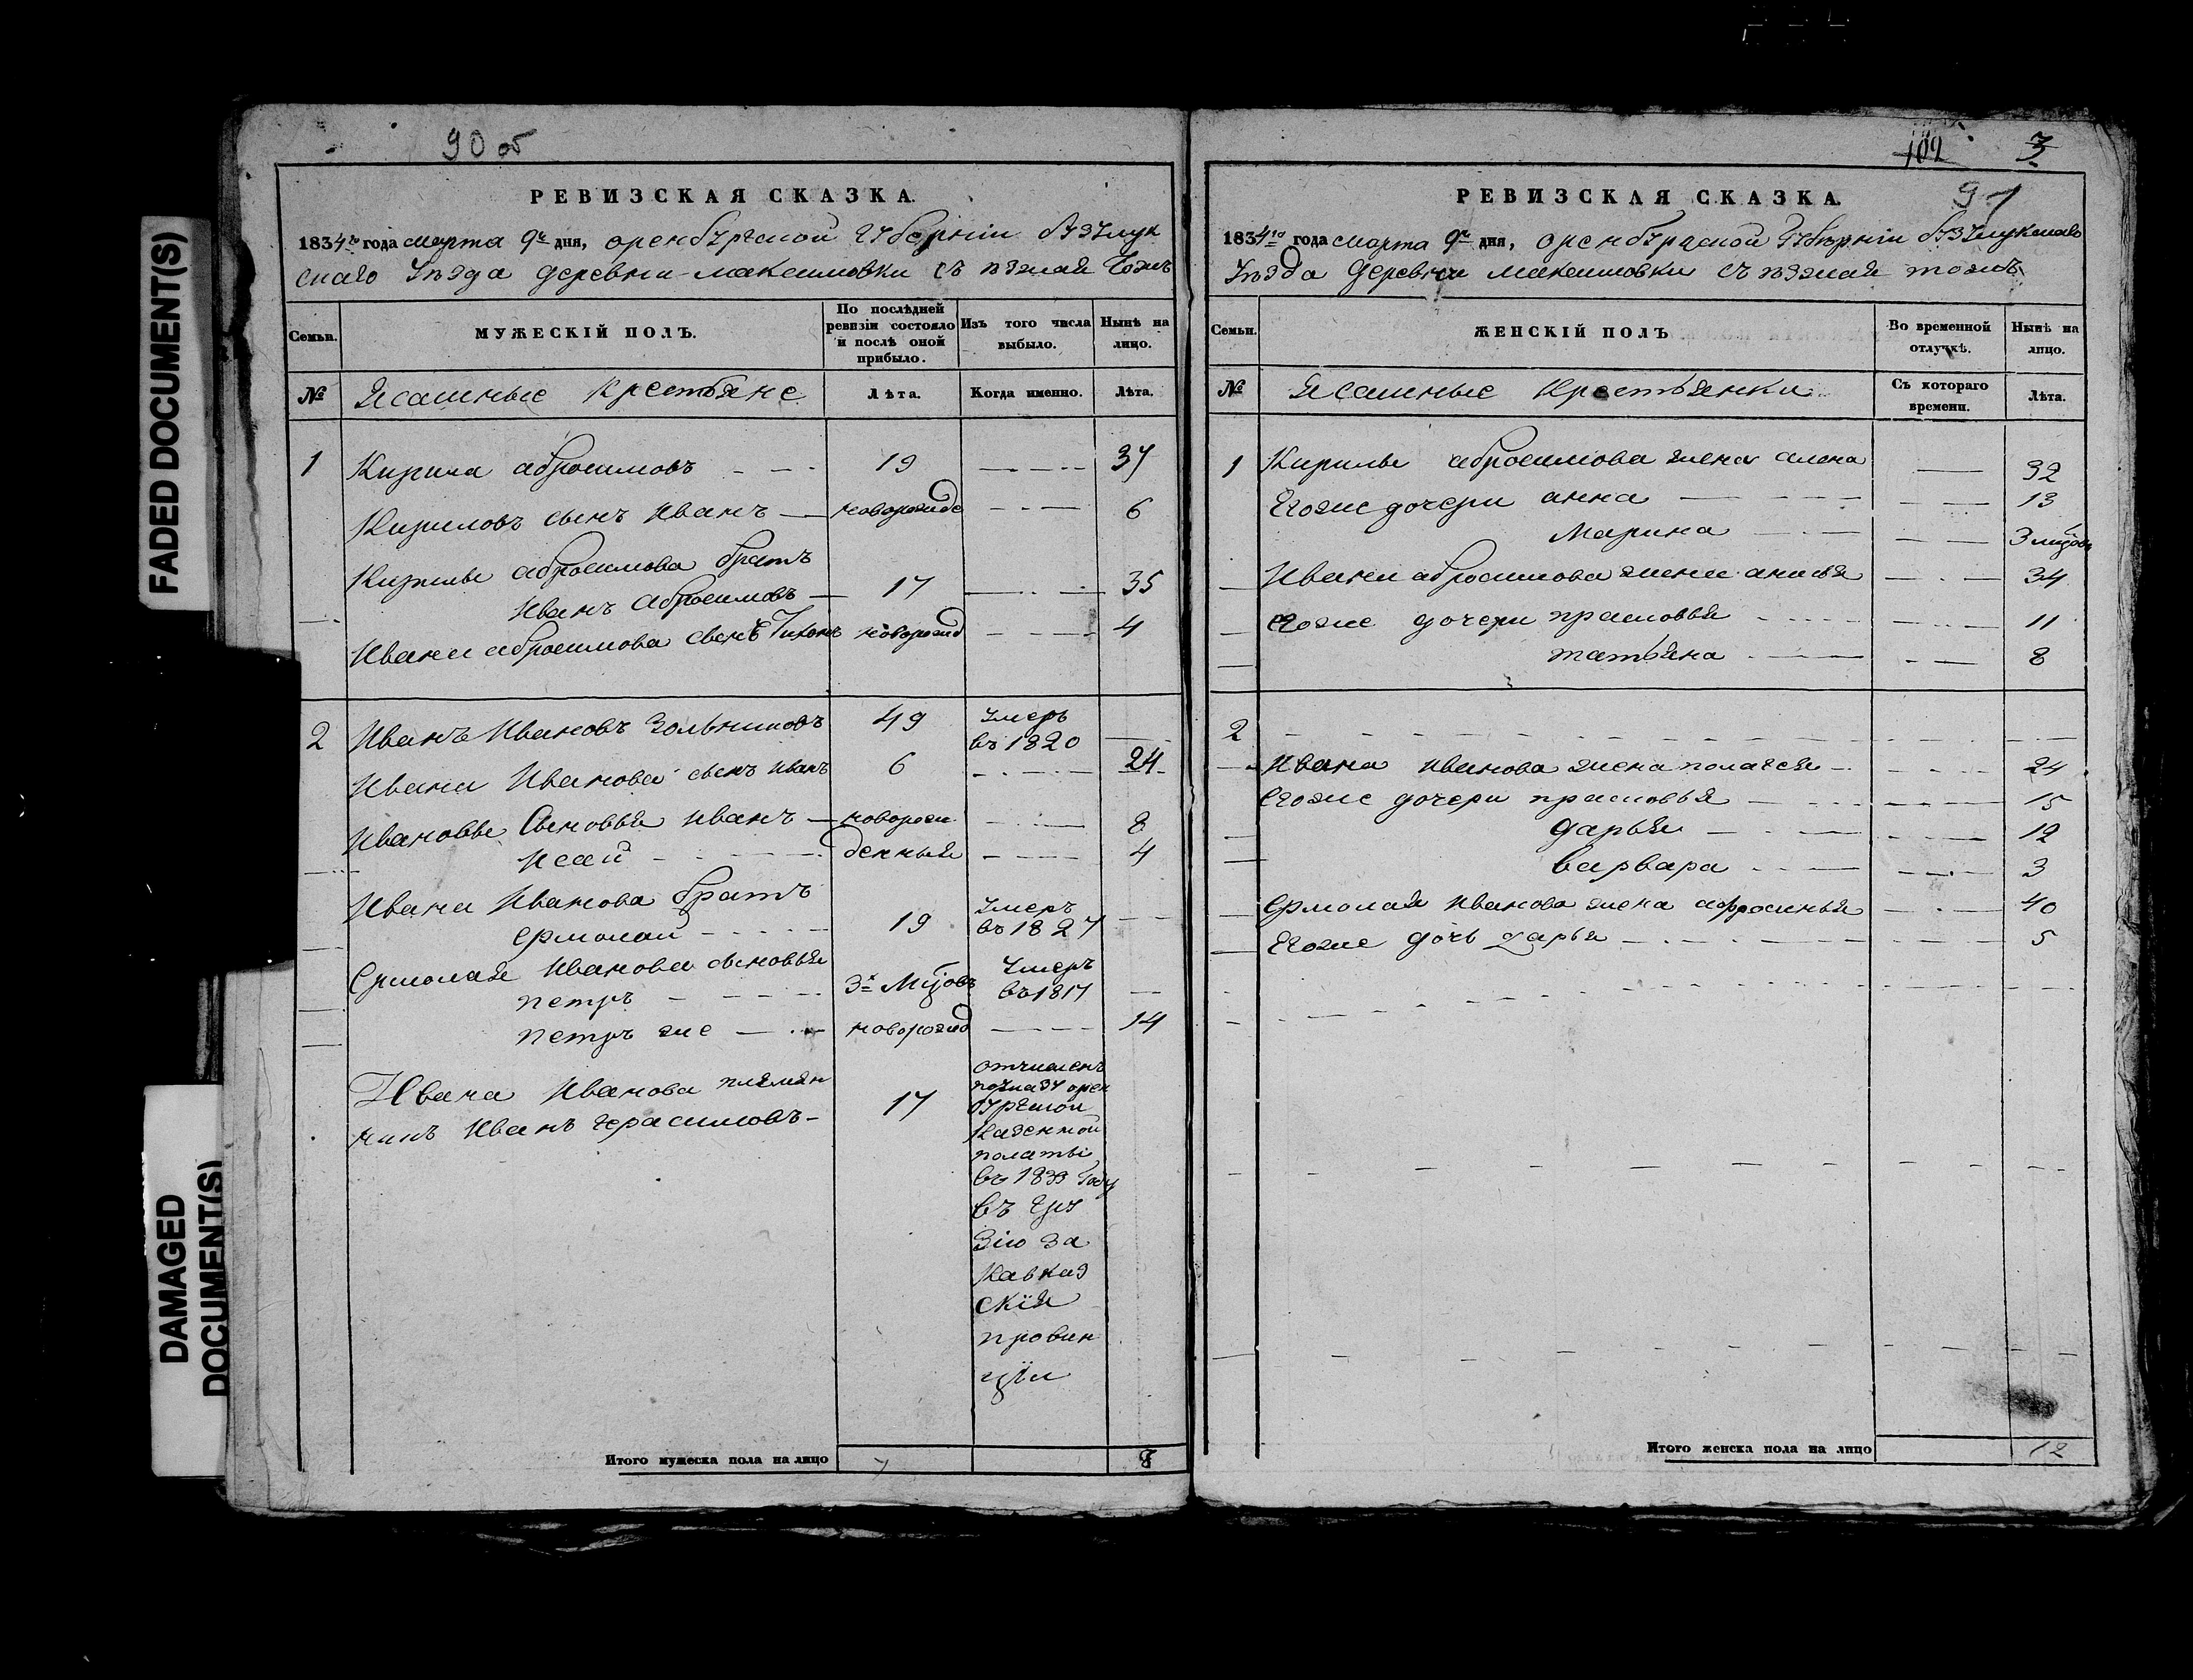 FADED DOCUMENT(S)
DAMAGED
DOCUMENT(S)
90 об
РЕВИЗСКАЯ СКАЗКА.
1834го года марта 9го дня, оренбургской губерніи бузулук
скаго уѣзда деревни максимовки съ пязлая тожъ
Семьи.
МУЖЕСКІЙ ПОЛЪ.
По послѣдней
ревизіи состояло
и послѣ оной
прибыло.
Изъ того числа
выбыло.
Нынѣ на
лицо.
№
Ясашные крестьяне
Лѣта.
Когда именно.
Лѣта.
1 Кирила абросимовъ 19 37
Кириловъ сынъ Иванъ новорожде 6
Кирилы абросимова братъ
Иванъ абросимовъ 17 35
Ивана абросимова сынъ Тихонъ новорожд 4
2 Иванъ Ивановъ Зольниковъ 49 умеръ
въ 1820
Ивана Иванова сынъ Иванъ 6 24
Ивановы Сыновья Иванъ новорож 8
Исай денныя 4
Ивана Иванова братъ
ермолай 19 умеръ
въ 1827
Ермолая Иванова сыновья
петръ 3х Мцовъ умеръ
въ 1817
петръ же новорожд 14
Ивана Иванова племян
никъ Иванъ герасимовъ 17
отчисленъ
по указу орен
бургской
Казенной
полаты
въ 1833 Году
въ Гру
зію за
Кавказ
скія
провин
ціи
Итого мужеска пола на лицо 7 8
102 3
91
РЕВИЗСКАЯ СКАЗКА.
1834го года марта 9го дня, оренбургской губерніи бузулукскаго
уѣзда деревни максимовки съ пязлая тожъ
Семьи.
ЖЕНСКІЙ ПОЛЪ
Во временной
отлучкѣ.
Нынѣ на
лицо.
№
Ясашные крестьянки
Съ котораго
времени.
Лѣта.
1 Кирилы абросимова жена алена 32
Егоже дочери анна 13
Марина 3 мцовъ
Ивана абросимова жена анисья 34
егоже дочери прасковья 11
татьяна 8
2
Ивана Иванова жена полагея 24
Егоже дочери прасковья 15
дарья 12
варвара 3
Ермолая Иванова жена афросинья 40
Егоже дочь дарья 5
Итого женска пола на лицо 12